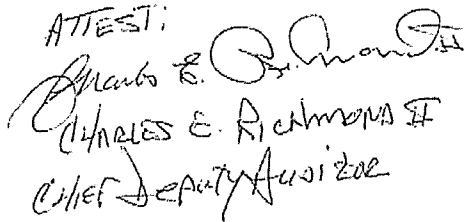 ATTEST:
Charles E. Richmond II
CHARLES E. RICHMOND II
CHIEF DEPUTY AUDITOR